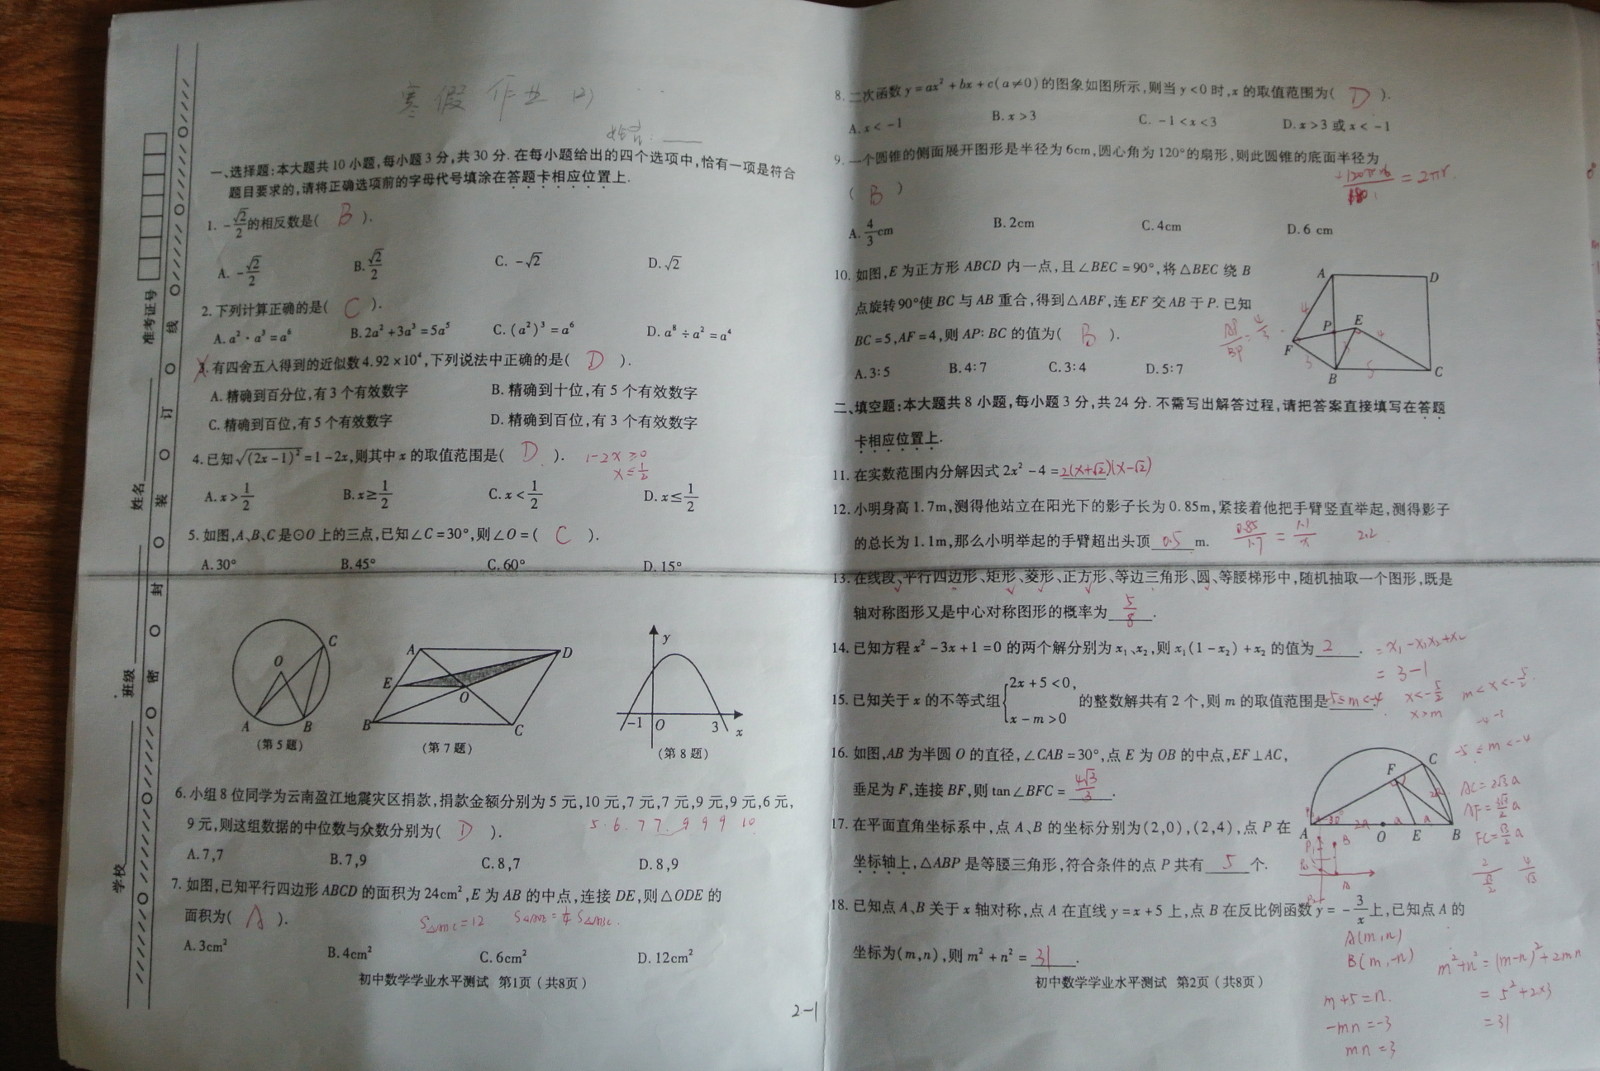 寒假作业(2)
姓名：
一、选择题:本大题共10小题,每小题3分,共30分.在每小题给出的四个选项中,恰有一项是符合
题目要求的,请将正确选项前的字母代号填涂在答题卡相应位置上.
1. -√2/2的相反数是( B ).
A. -√2/2 B. √2/2 C. -√2 D. √2
2. 下列计算正确的是( C ).
A. a²·a³=a⁶ B. 2a²+3a³=5a⁵ C. (a²)³=a⁶ D. a⁸÷a²=a⁴
3. 有四舍五入得到的近似数4.92×10⁴,下列说法中正确的是( D ).
A. 精确到百分位,有3个有效数字 B. 精确到十位,有5个有效数字
C. 精确到百位,有5个有效数字 D. 精确到百位,有3个有效数字
4. 已知√(2x-1)²=1-2x,则其中x的取值范围是( D ). 1-2x≥0
x≤1/2
A. x>1/2 B. x≥1/2 C. x<1/2 D. x≤1/2
5. 如图,A、B、C是⊙O上的三点,已知∠C=30°,则∠O=( C ).
A. 30° B. 45° C. 60° D. 15°
C O A B
A D E O B C
y -1 O 3 x
(第5题) (第7题) (第8题)
6. 小组8位同学为云南盈江地震灾区捐款,捐款金额分别为5元,10元,7元,7元,9元,9元,6元,
9元,则这组数据的中位数与众数分别为( D ). 5.6.7 7.9 9 9 10
A. 7,7 B. 7,9 C. 8,7 D. 8,9
7. 如图,已知平行四边形ABCD的面积为24cm²,E为AB的中点,连接DE,则△ODE的
面积为( A ).
A. 3cm² B. 4cm² C. 6cm² D. 12cm²
初中数学学业水平测试 第1页(共8页)
2-1
准考证号
姓名
班级
学校
线 订 装 封 密
8. 二次函数y=ax²+bx+c(a≠0)的图象如图所示,则当y<0时,x的取值范围为( D ).
A. x<-1 B. x>3 C. -1<x<3 D. x>3或x<-1
9. 一个圆锥的侧面展开图形是半径为6cm,圆心角为120°的扇形,则此圆锥的底面半径为
( B ) = 2πr
A. 4/3cm B. 2cm C. 4cm D. 6 cm
10. 如图,E为正方形ABCD内一点,且∠BEC=90°,将△BEC绕B
点旋转90°使BC与AB重合,得到△ABF,连EF交AB于P.已知
BC=5,AF=4,则AP:BC的值为( B ).
A. 3:5 B. 4:7 C. 3:4 D. 5:7
A D P E F B C
二、填空题:本大题共8小题,每小题3分,共24分.不需写出解答过程,请把答案直接填写在答题
卡相应位置上.
11. 在实数范围内分解因式2x²-4=2(x+√2)(x-√2)
12. 小明身高1.7m,测得他站立在阳光下的影子长为0.85m,紧接着他把手臂竖直举起,测得影子
的总长为1.1m,那么小明举起的手臂超出头顶 0.5 m. 0.85/1.7 = 1.1/x 2.2
13. 在线段、平行四边形、矩形、菱形、正方形、等边三角形、圆、等腰梯形中,随机抽取一个图形,既是
轴对称图形又是中心对称图形的概率为 5/8 .
14. 已知方程x²-3x+1=0的两个解分别为x₁、x₂,则x₁(1-x₂)+x₂的值为 2 . = x₁-x₁x₂+x₂
= 3-1
15. 已知关于x的不等式组{2x+5<0, x-m>0 的整数解共有2个,则m的取值范围是 -5≤m<-4 . x<-5/2 m<x<-5/2
x>m
-5≤m<-4
16. 如图,AB为半圆O的直径,∠CAB=30°,点E为OB的中点,EF⊥AC,
垂足为F,连接BF,则tan∠BFC= 4√3/3 .
C F A O E B
AC=2√3a
AF=3√3/2 a
FC=√3/2 a
17. 在平面直角坐标系中,点A、B的坐标分别为(2,0),(2,4),点P在
坐标轴上,△ABP是等腰三角形,符合条件的点P共有 5 个.
18. 已知点A、B关于x轴对称,点A在直线y=x+5上,点B在反比例函数y=-3/x上,已知点A的
坐标为(m,n),则m²+n²= 31 .
A(m,n)
B(m,-n) m²+n²=(m-n)²+2mn
m+5=n = 5²+2×3
-mn=-3 =31
mn=3
初中数学学业水平测试 第2页(共8页)